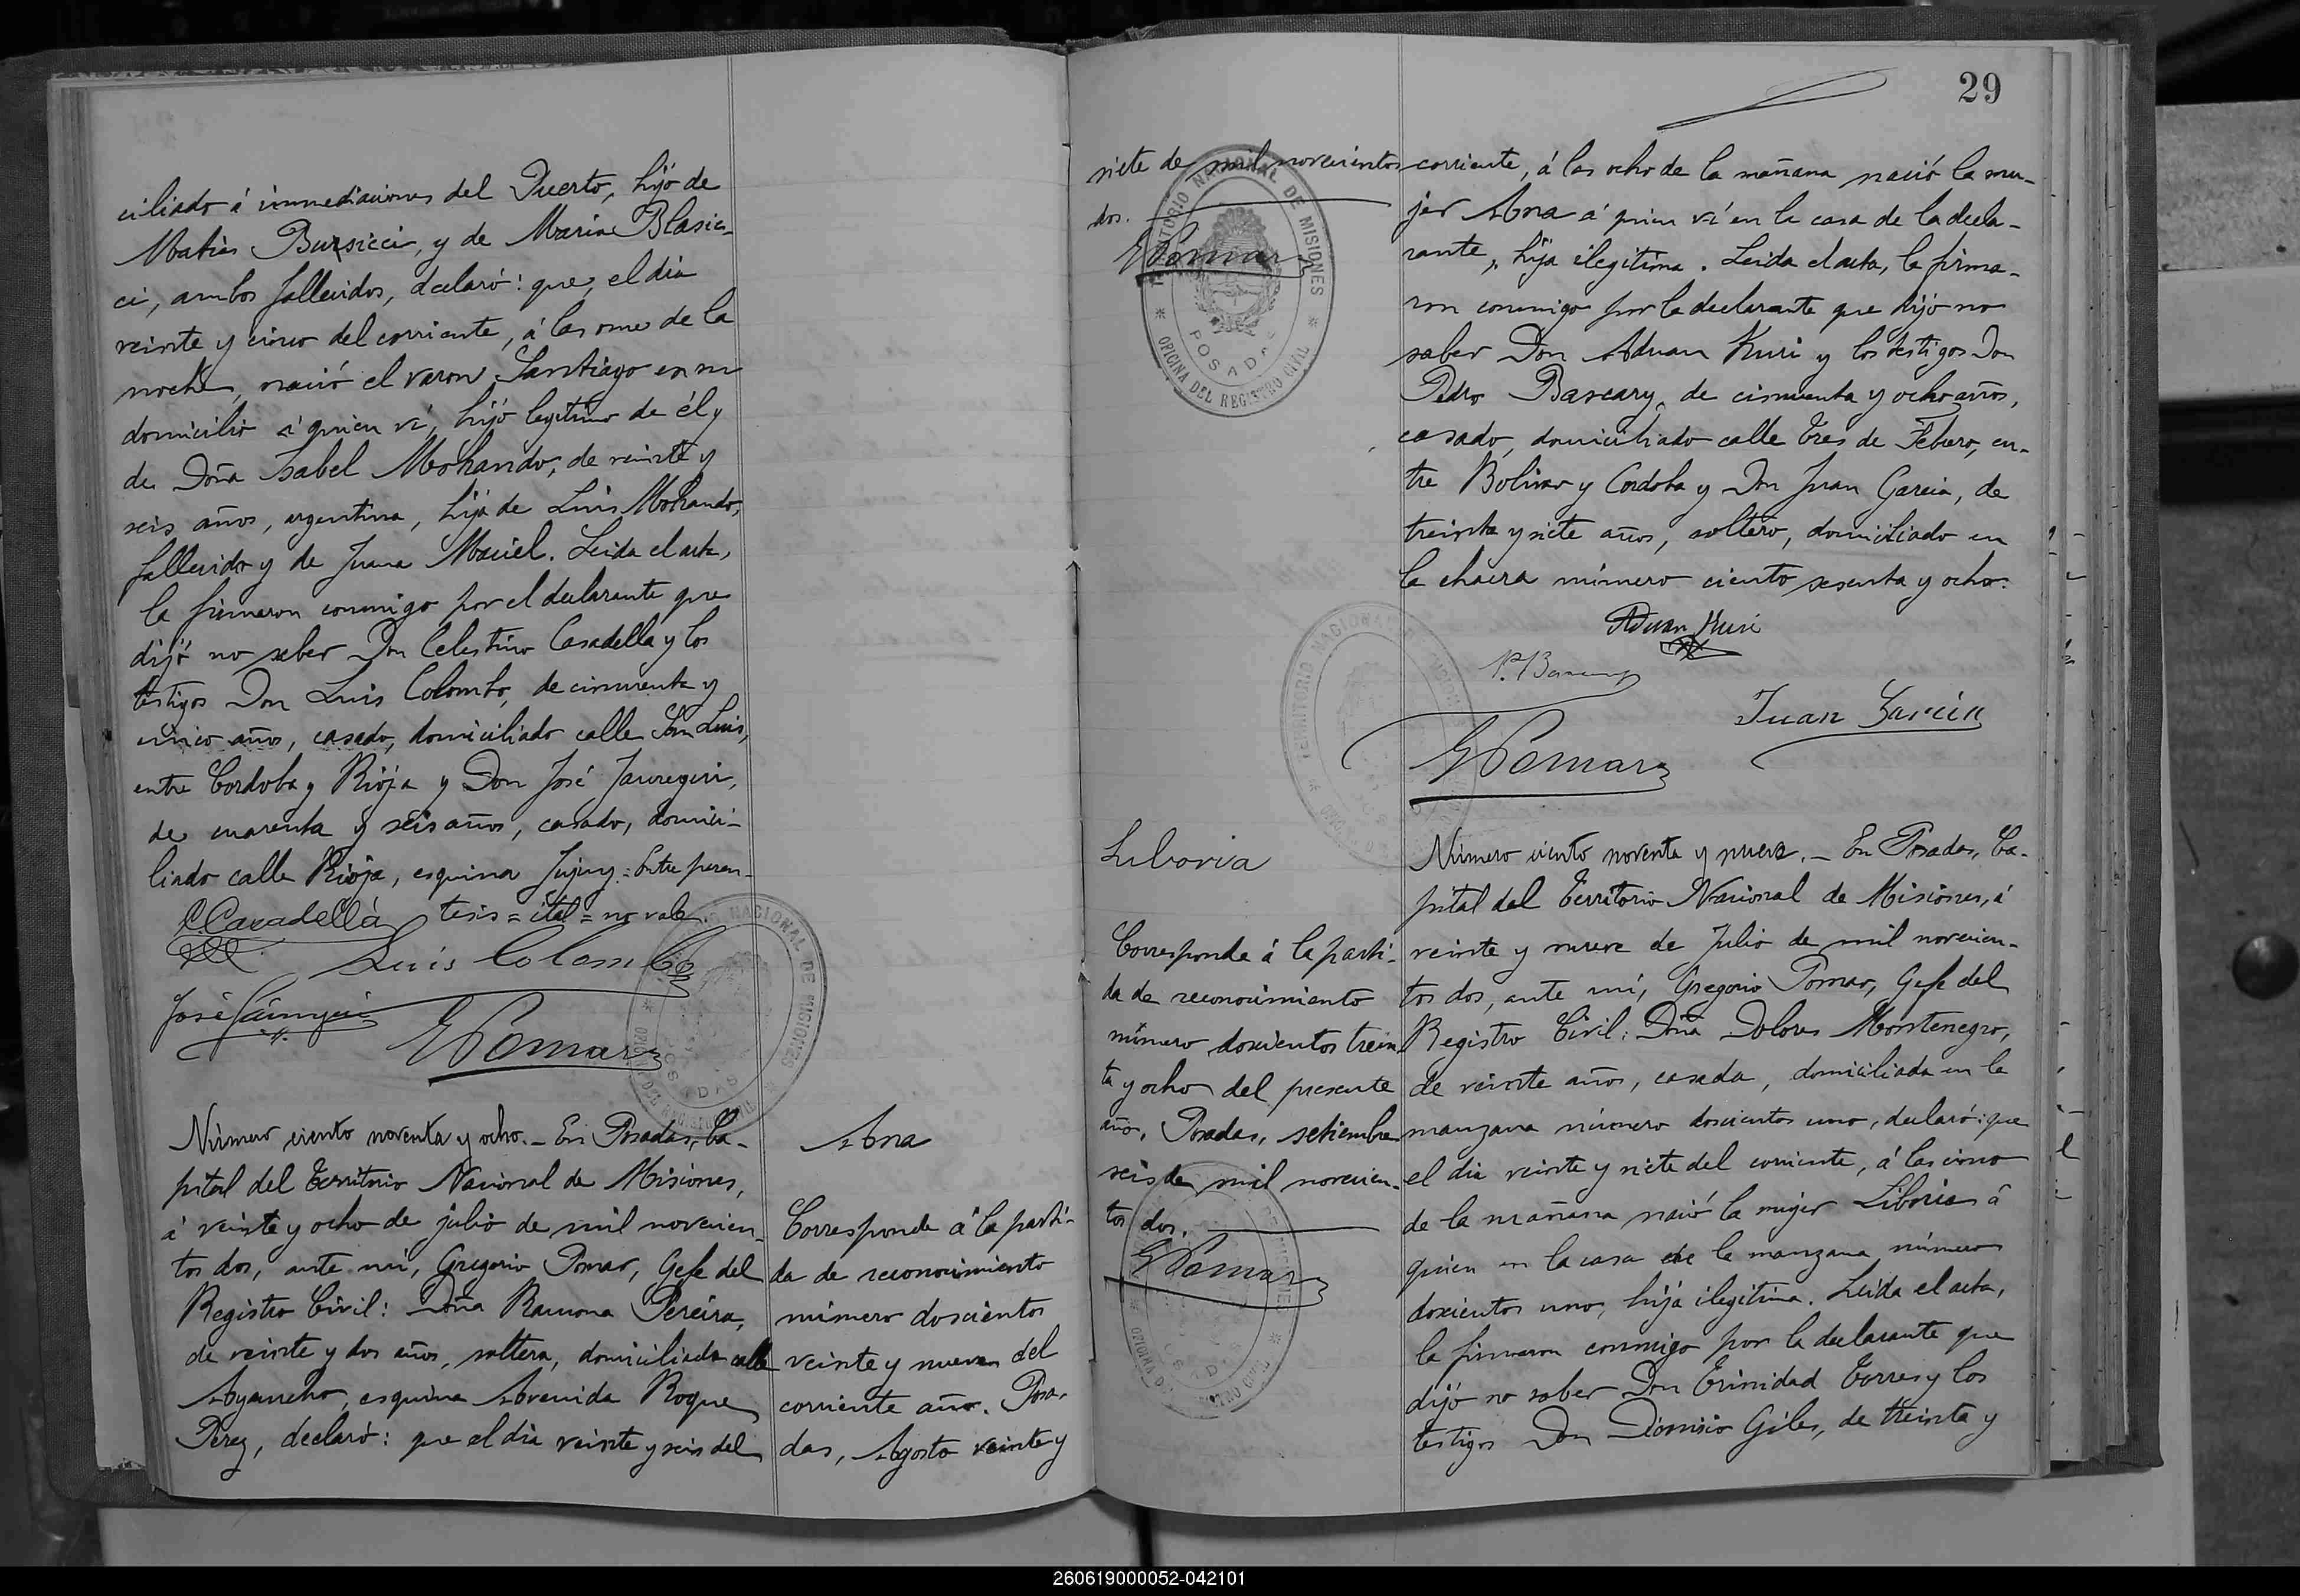 ciliado á inmediaciones del Puerto, hijo de
Matias Bursicci, y de Maria Blasic-
ci, ambos fallecidos, declaró: que, el dia
veinte y cinco del corriente, á las once de la
noche, nació el varon Santiago en su
domicilio á quien ví, hijo legítimo de él y
de Doña Isabel Mohando, de veinte y
seis años, argentina, hija de Luis Mohando,
fallecido y de Juana Maciel. Leida el acta,
la firmaron conmigo por el declarante que
dijó no saber Don Celestino Casadella y los
testigos Don Luis Colombo, de cincuenta y
cinco años, casado, domiciliado calle San Luis,
entre Cordoba y Rioja y Don José Jauregui,
de cuarenta y seis años, casado, domici-
liado calle Rioja, esquina Jujuy.=Entre paren-
tesis = ital = no vale.
C. Casadellá
Luis Colombo
José Jauregui
GPomar
Número ciento noventa y ocho.- En Posadas, Ca-
pital del Territorio Nacional de Misiones,
á veinte y ocho de julio de mil novecien-
tos dos, ante mi, Gregorio Pomar, Gefe del
Registro Civil: Doña Ramona Pereira,
de veinte y dos años, soltera, domiciliada calle
Ayacucho, esquina Avenida Roque
Perez, declaró: que el dia veinte y seis del
Ana
Corresponde á la parti-
da de reconocimiento
número doscientos
veinte y nueve del
corriente año. Posa-
das, Agosto veinte y
29
siete de mil novecientos
dos.
GPomar
TERRITORIO NACIONAL DE MISIONES
POSADAS
OFICINA DEL REGISTRO CIVIL
corriente, á las ocho de la mañana nació la mu-
jer Ana á quien ví en la casa de la decla-
rante, hija ilegítima. Leida el acta, la firma-
ron conmigo por la declarante que dijó no
saber Don Aduan Kuri y los testigos Don
Pedro Bascary, de cincuenta y ocho años,
casado, domiciliado calle Tres de Febrero, en-
tre Bolivar y Cordoba y Don Juan Garcia, de
treinta y siete años, soltero, domiciliado en
la chacra número ciento sesenta y ocho.
Aduan Kuri
P. Bascary
Juan Garcia
GPomar
Liboria
Corresponde á la parti-
da de reconocimiento
número doscientos trein
ta y ocho del presente
año, Posadas, setiembre
seis de mil novecien-
tos dos.
GPomar
Número ciento noventa y nueve.- En Posadas, Ca-
pital del Territorio Nacional de Misiones, á
veinte y nueve de Julio de mil novecien-
tos dos, ante mi, Gregorio Pomar, Gefe del
Registro Civil: Doña Dolores Montenegro,
de veinte años, casada, domiciliada en la
manzana número doscientos uno, declaró: que
el dia veinte y siete del corriente, á las cinco
de la mañana nació la mujer Liboria á
quien en la casa de la manzana número
doscientos uno, hija ilegítima. Leida el acta,
la firmaron conmigo por la declarante que
dijó no saber Don Trinidad Torres y los
testigos Don Dionisio Giles, de treinta y
260619000052-042101